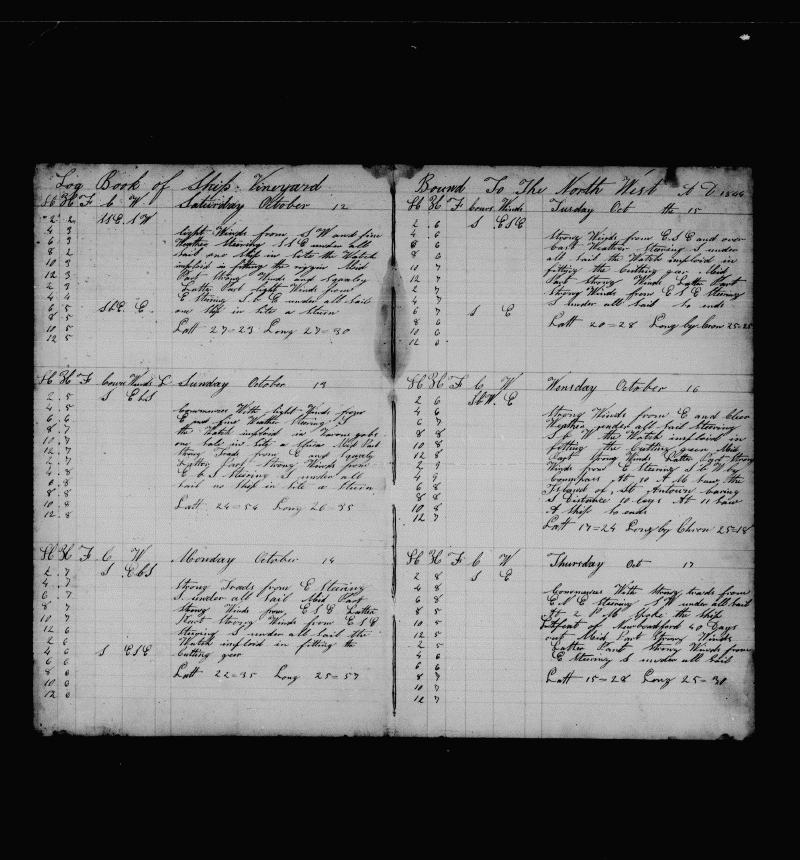 Log Book of Ship Vineyard
H K F C W Saturday October 12
2 2 SSE SW
4 3 light Winds from SW and fine
6 3 Weather Steering SSE under all
8 2 Sail one Ship in Site the Watch
10 3 imploid in fitting the riggin Mid
12 3 Part Strong Winds and Squaley
2 3 Latter Part light Winds from
4 4 E Steering S b E under all Sail
6 5 SbE E one Ship in Site a Stern
8 6
10 5 Latt 27=23 Long 27=30
12 5
H K F Cours Winds L Sunday October 13
2 5 S EbS
4 5 Commences With light Winds from
6 6 E and fine Weather Steering S
8 7 the Watch imploid in Various jobs
10 7 one Sale in Site a Mid Part
12 7 Strong Trads from E and Squaly
4 7 Latter Part Strong Winds from
4 8 E b S Steering S under all
6 8 Sail no Ship in Site a Stern
8 8
10 8 Latt 24=54 Long 26=35
12 8
H K F C W Monday October 14
2 7 S EbS
4 7 Strong Trads from E Steering
6 7 S under all Sail Mid Part
8 7 Strong Winds from ESE Latter
10 7 Part Strong Winds from ESE
12 6 Steering S under all Sail the
2 6 Watch imploid in fitting the
4 6 S ESE Cutting geer
6 6
8 6 Latt 22=35 Long 25=57
10 6
12 6
Bound To The North West A D 1844
H K F Cours Winds Tusday Oct the 15
2 6 S ESE
4 6 Strong Winds from ESE and over
6 6 Cast Weather Steering S under
8 6 all Sail the Watch imploid in
10 7 fitting the Cutting gear Mid
12 7 Part Strong Winds Latter Part
2 7 Strong Winds from ESE Steering
4 7 S under all Sail So ends
6 7 S E
8 6 Latt 20=28 Long by Cron 25=25
10 6
12 6
H K F C W Wensday October 16
2 6 SbW E
4 6 Strong Winds from E and Clear
6 7 Weather under all Sail Steering
8 8 S b W the Watch imploid in
10 8 fitting the Cutting geer Mid
12 8 Part Strong Winds Latter Part Strong
2 9 Winds from E Steering S b W by
4 9 Compass At 10 A M Saw the
6 8 Island of St Antown baring
8 8 S Distance 10 legs At 11 Saw
10 8 A Ship So ends
12 7
Latt 17=24 Long by Chron 25=18
H K F C W Thursday Oct 17
2 8 S E
4 8 Commences With Strong trads from
6 8 E b E Steering SW under all Sail
8 5 At 2 P M Spoke the Ship
10 5 of Newbedford 40 Days
12 5 out Mid Part Strong Winds
2 5 Latter Part Strong Winds from
4 6 E Steering S under all Sail
6 6
8 7 Latt 15=28 Long 25=30
10 7
12 7